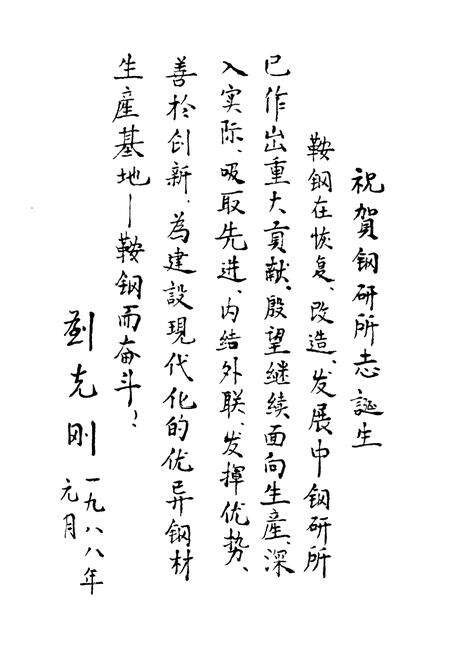 祝賀钢研所志誕生
鞍钢在恢复、改造、发展中钢研所
已作出重大貢献、殷望继续面向生産、深
入实际、吸取先进、内结外联、发揮优势、
善於创新、為建設現代化的优异钢材
生産基地—鞍钢而奋斗！
劉克刚
一九八八年
元月